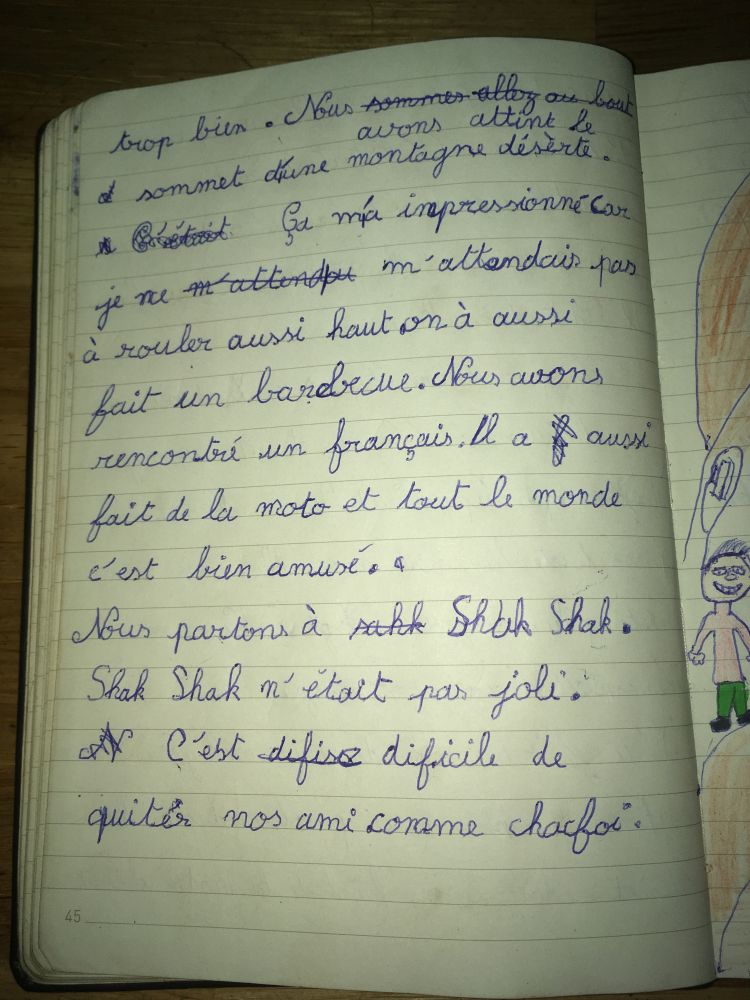 trop bien. Nous sommes allez au bout
avons attint le
sommet d'une montagne désèrte.
C'était Ça m'a impressionné car
je ne m'attendpu m'attendais pas
à rouler aussi haut on à aussi
fait un barbecue. Nous avons
rencontré un français. Il a aussi
fait de la moto et tout le monde
c'est bien amusé.
Nous partons à sahk Shak Shak.
Shak Shak n'était pas joli.
C'est difise dificile de
quitér nos ami comme chacfoi.
45